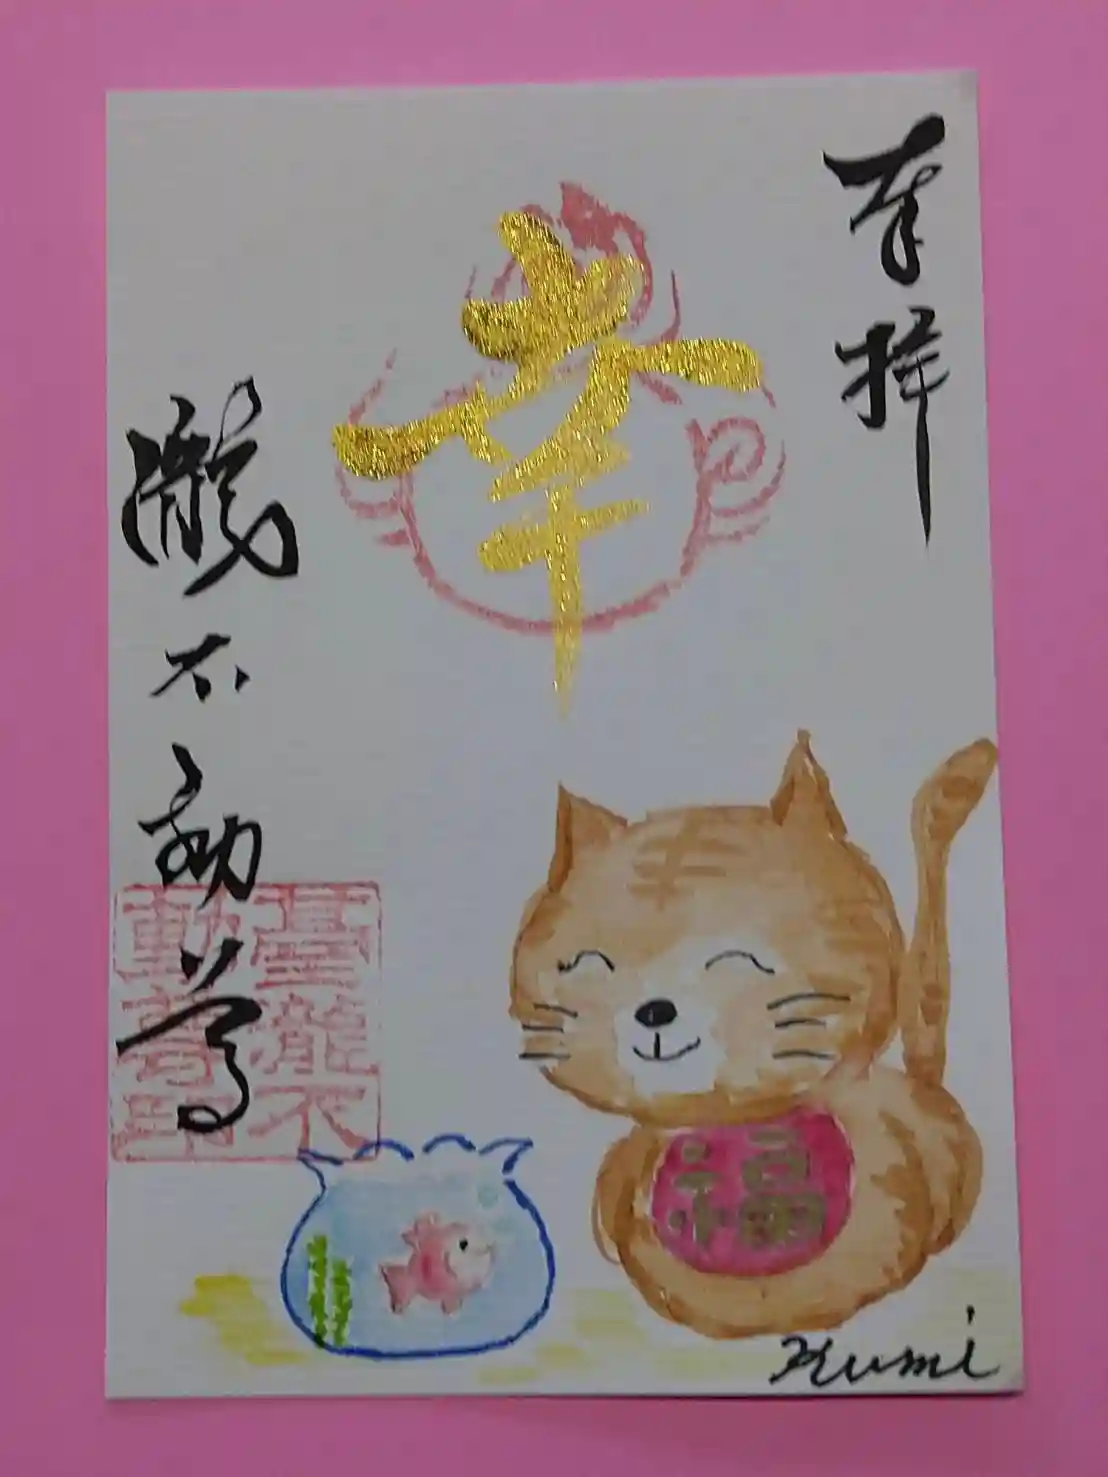 奉拝
幸
瀧不動尊
臺瀧不
動尊印
福
Kumi